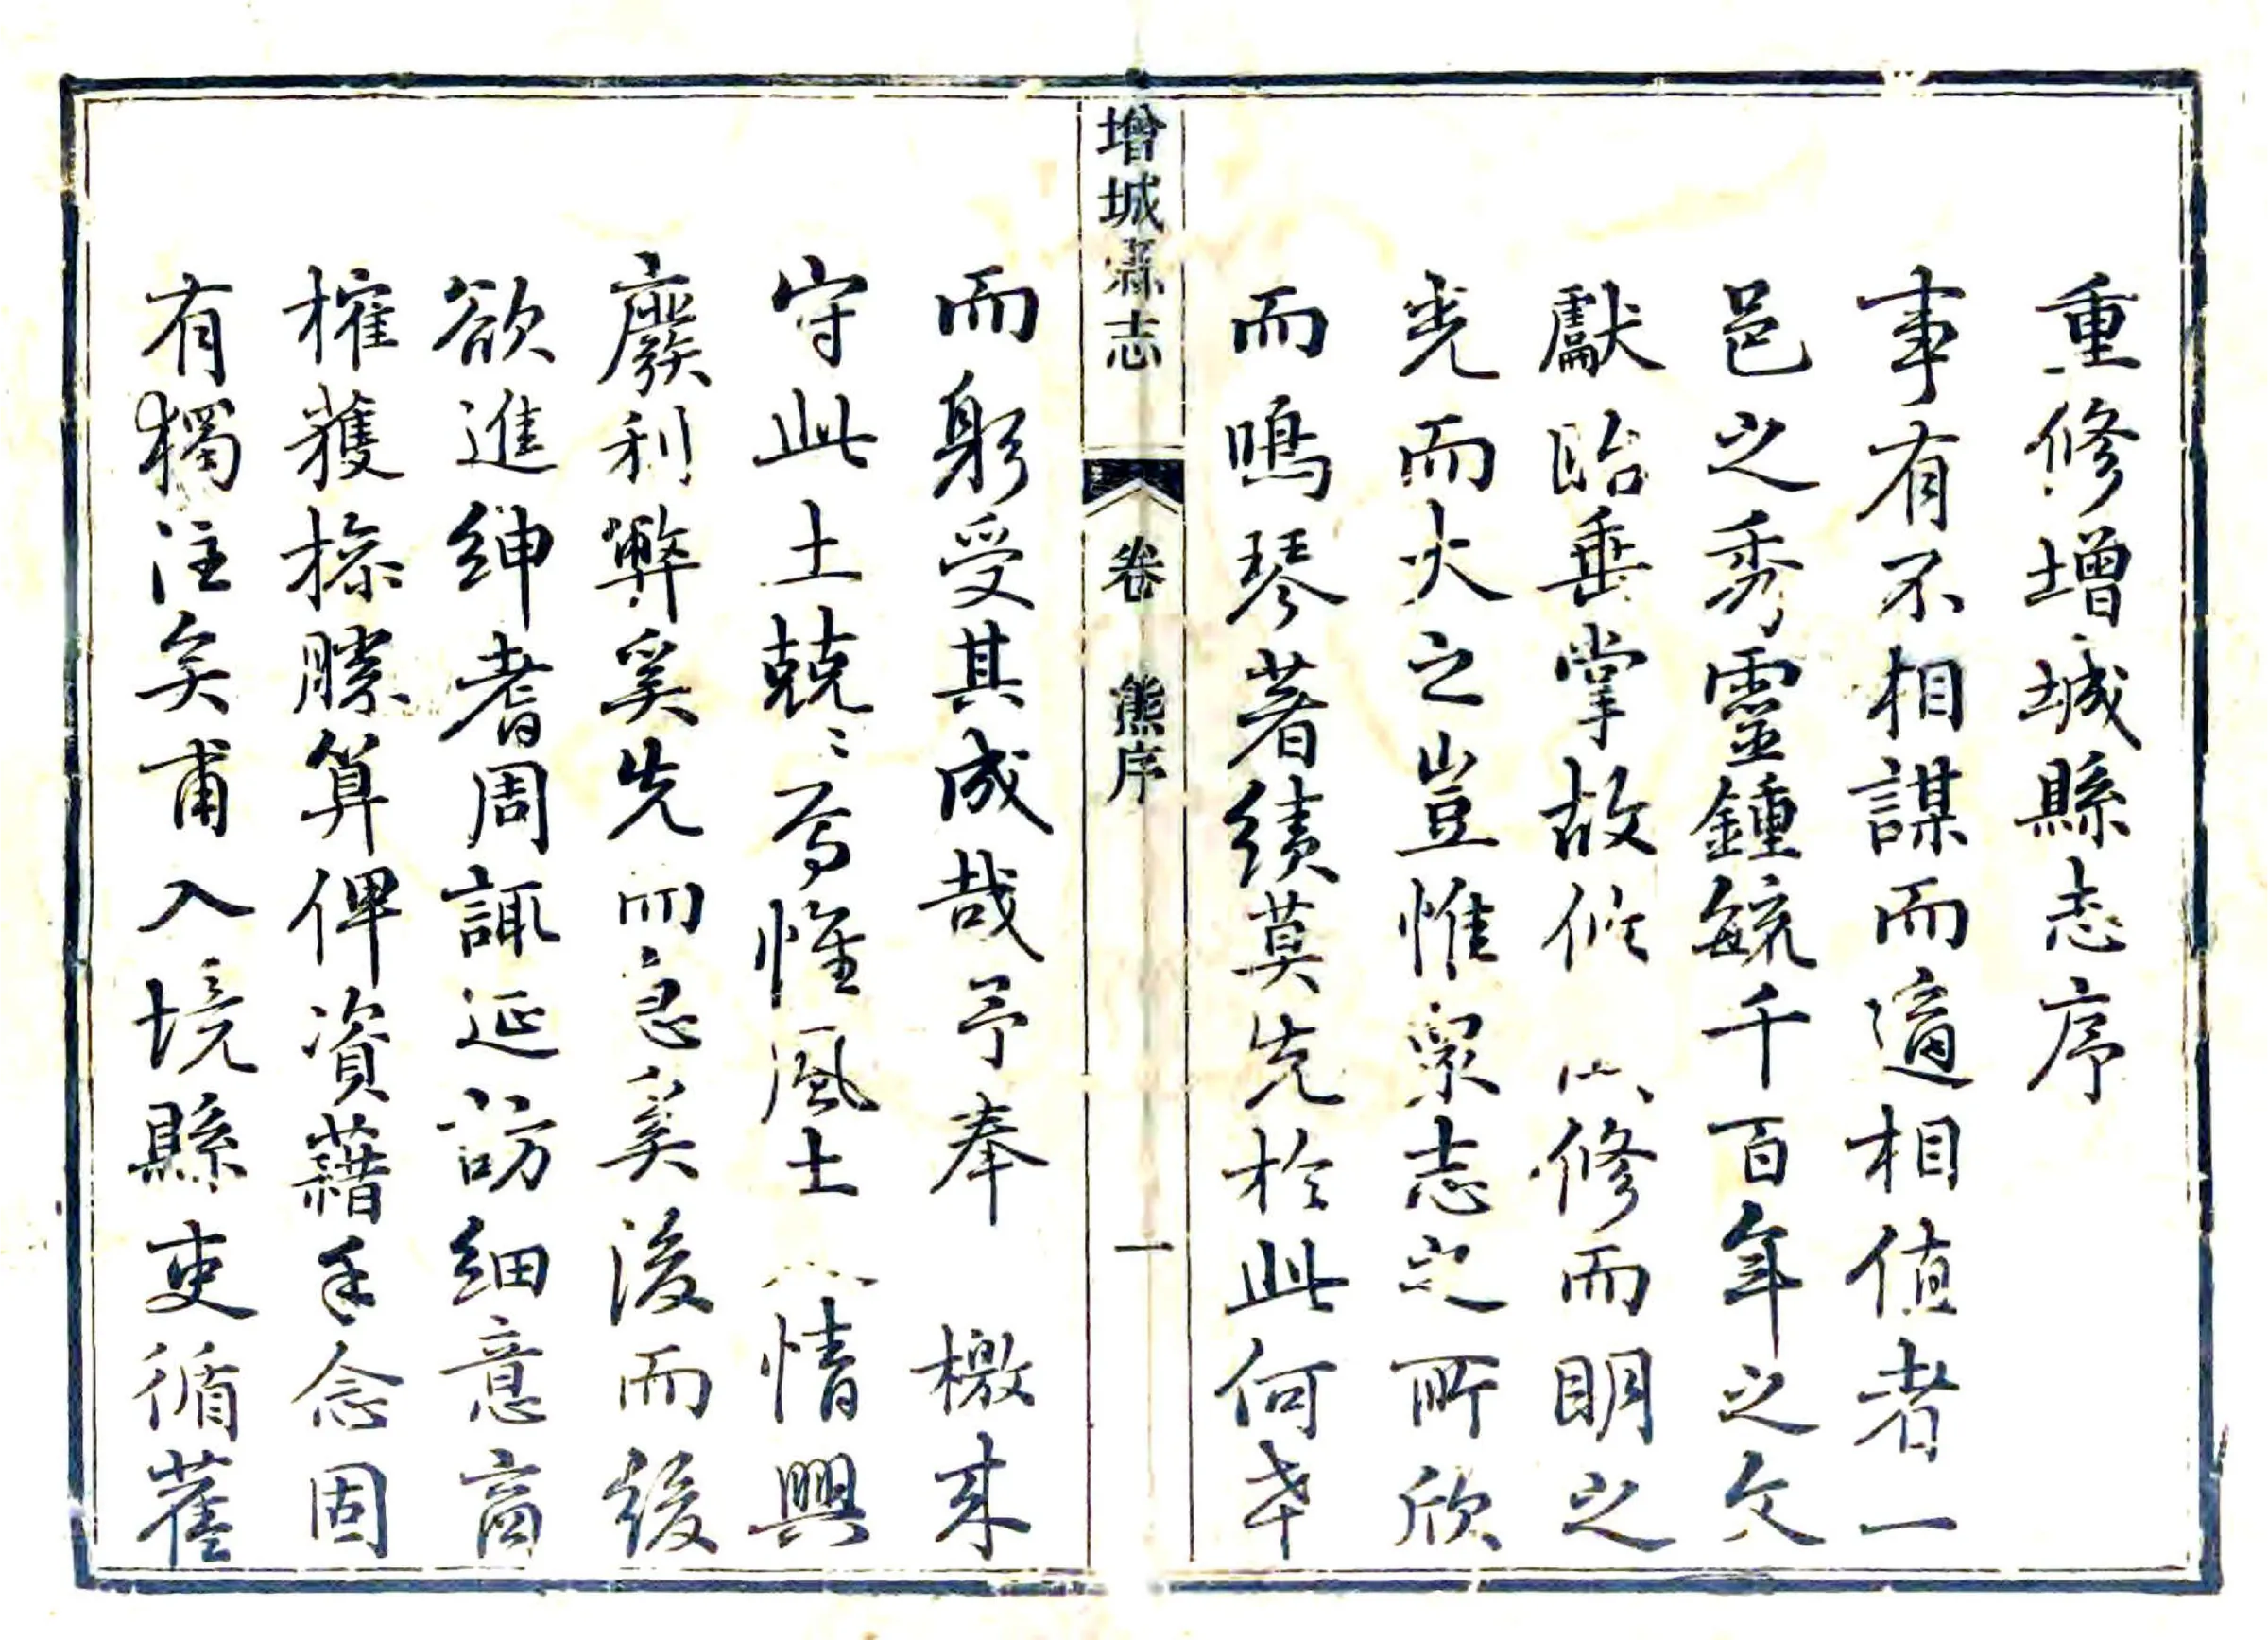 重修增城縣志序
事有不相謀而適相值者一
邑之秀靈鍾毓千百年之文
獻貽垂掌故修而明之
光而大之豈惟眾志之所欣
而鳴琴著績莫先於此何幸
增城縣志
卷
熊序
一
而躬受其成哉予奉檄來
守此土兢〻焉惟風土人情興
廢利弊奚先而急奚後而緩
欲進紳耆周諏延訪細意商
榷獲操勝算俾資藉手念固
有獨注矣甫入境縣吏循舊